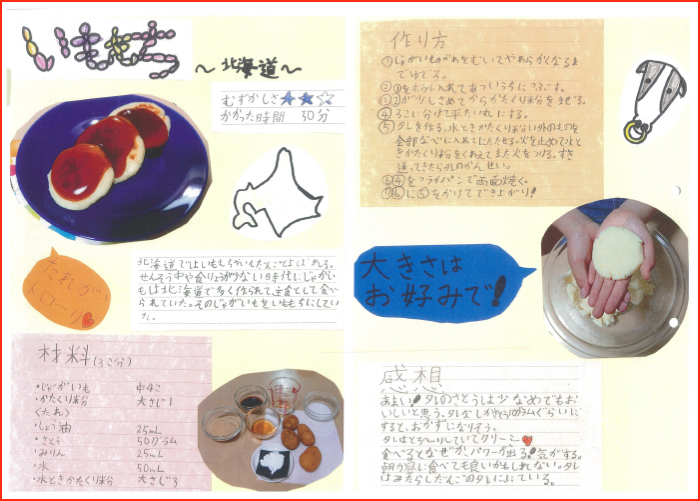 いももち
～北海道～
むずかしさ★★☆
かかった時間 30分
北海道ではいももちをいもだんごとよばれる。
たれがトローリ
材料(3こ分)
・じゃがいも 中4こ
・かたくり粉 大さじ1
<たれ>
・しょう油 25mL
・さとう 50グラム
・みりん 25mL
・水 50mL
・水ときかたくり粉 大さじ3
作り方
①じゃがいものかわをむいてやわらかくなるま
でゆでる。
②①をボウルに入れてあついうちにつぶす。
③②が少しさめてからかたくり粉をまぜる。
④3こに分けて平たい丸にする。
⑤タレを作る。水ときかたくり粉い外のものを
全部なべに入れてにたたせる。火を止めて水と
きかたくり粉をくわえてまた火をつける。すき
通ってきたらタレのかんせい。
⑥④をフライパンで両面焼く。
⑦⑥に⑤をかけてできよがり!
大きさは
お好みで!
感想
あまい!タレのさとうは少なめでもお
いしいと思う。タレなしか
すると、おかずになりそう。
タレはとろ～りしていてクリーミー
食べるとなぜか、パワーが出る!気がする。
朝ご
はみたらしだんごのタレににている。